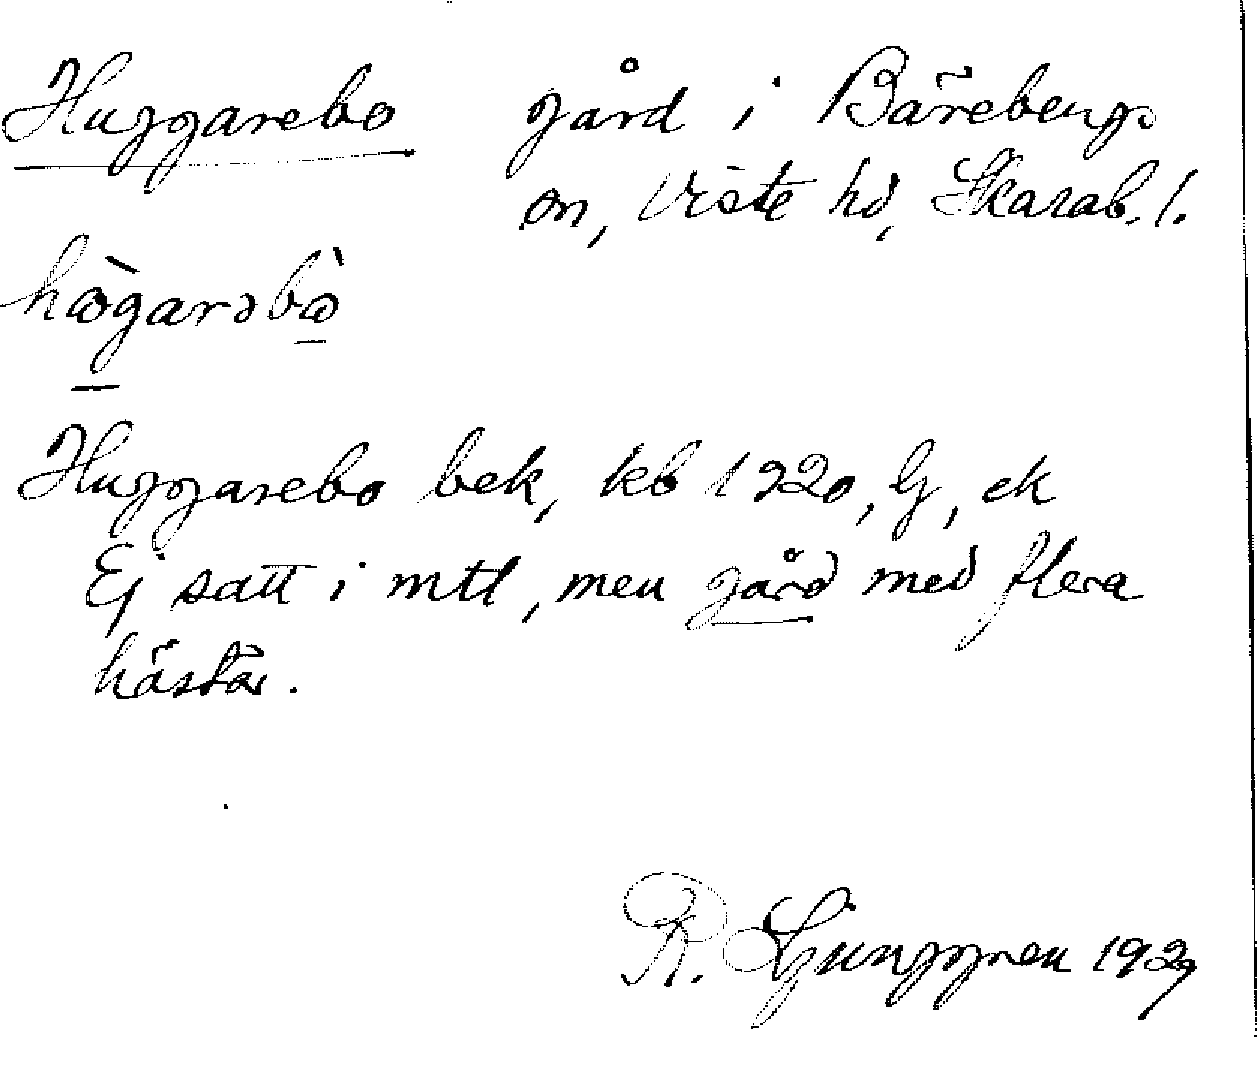 Huggarebo gård i Bärebergs
sn, Viste hd, Skarab. l.
hògarəbò
Huggarebo bek, kb 1920, G, ek
Ej satt i mtl, men gård med flera
hästar.
R. Ljunggren 1929